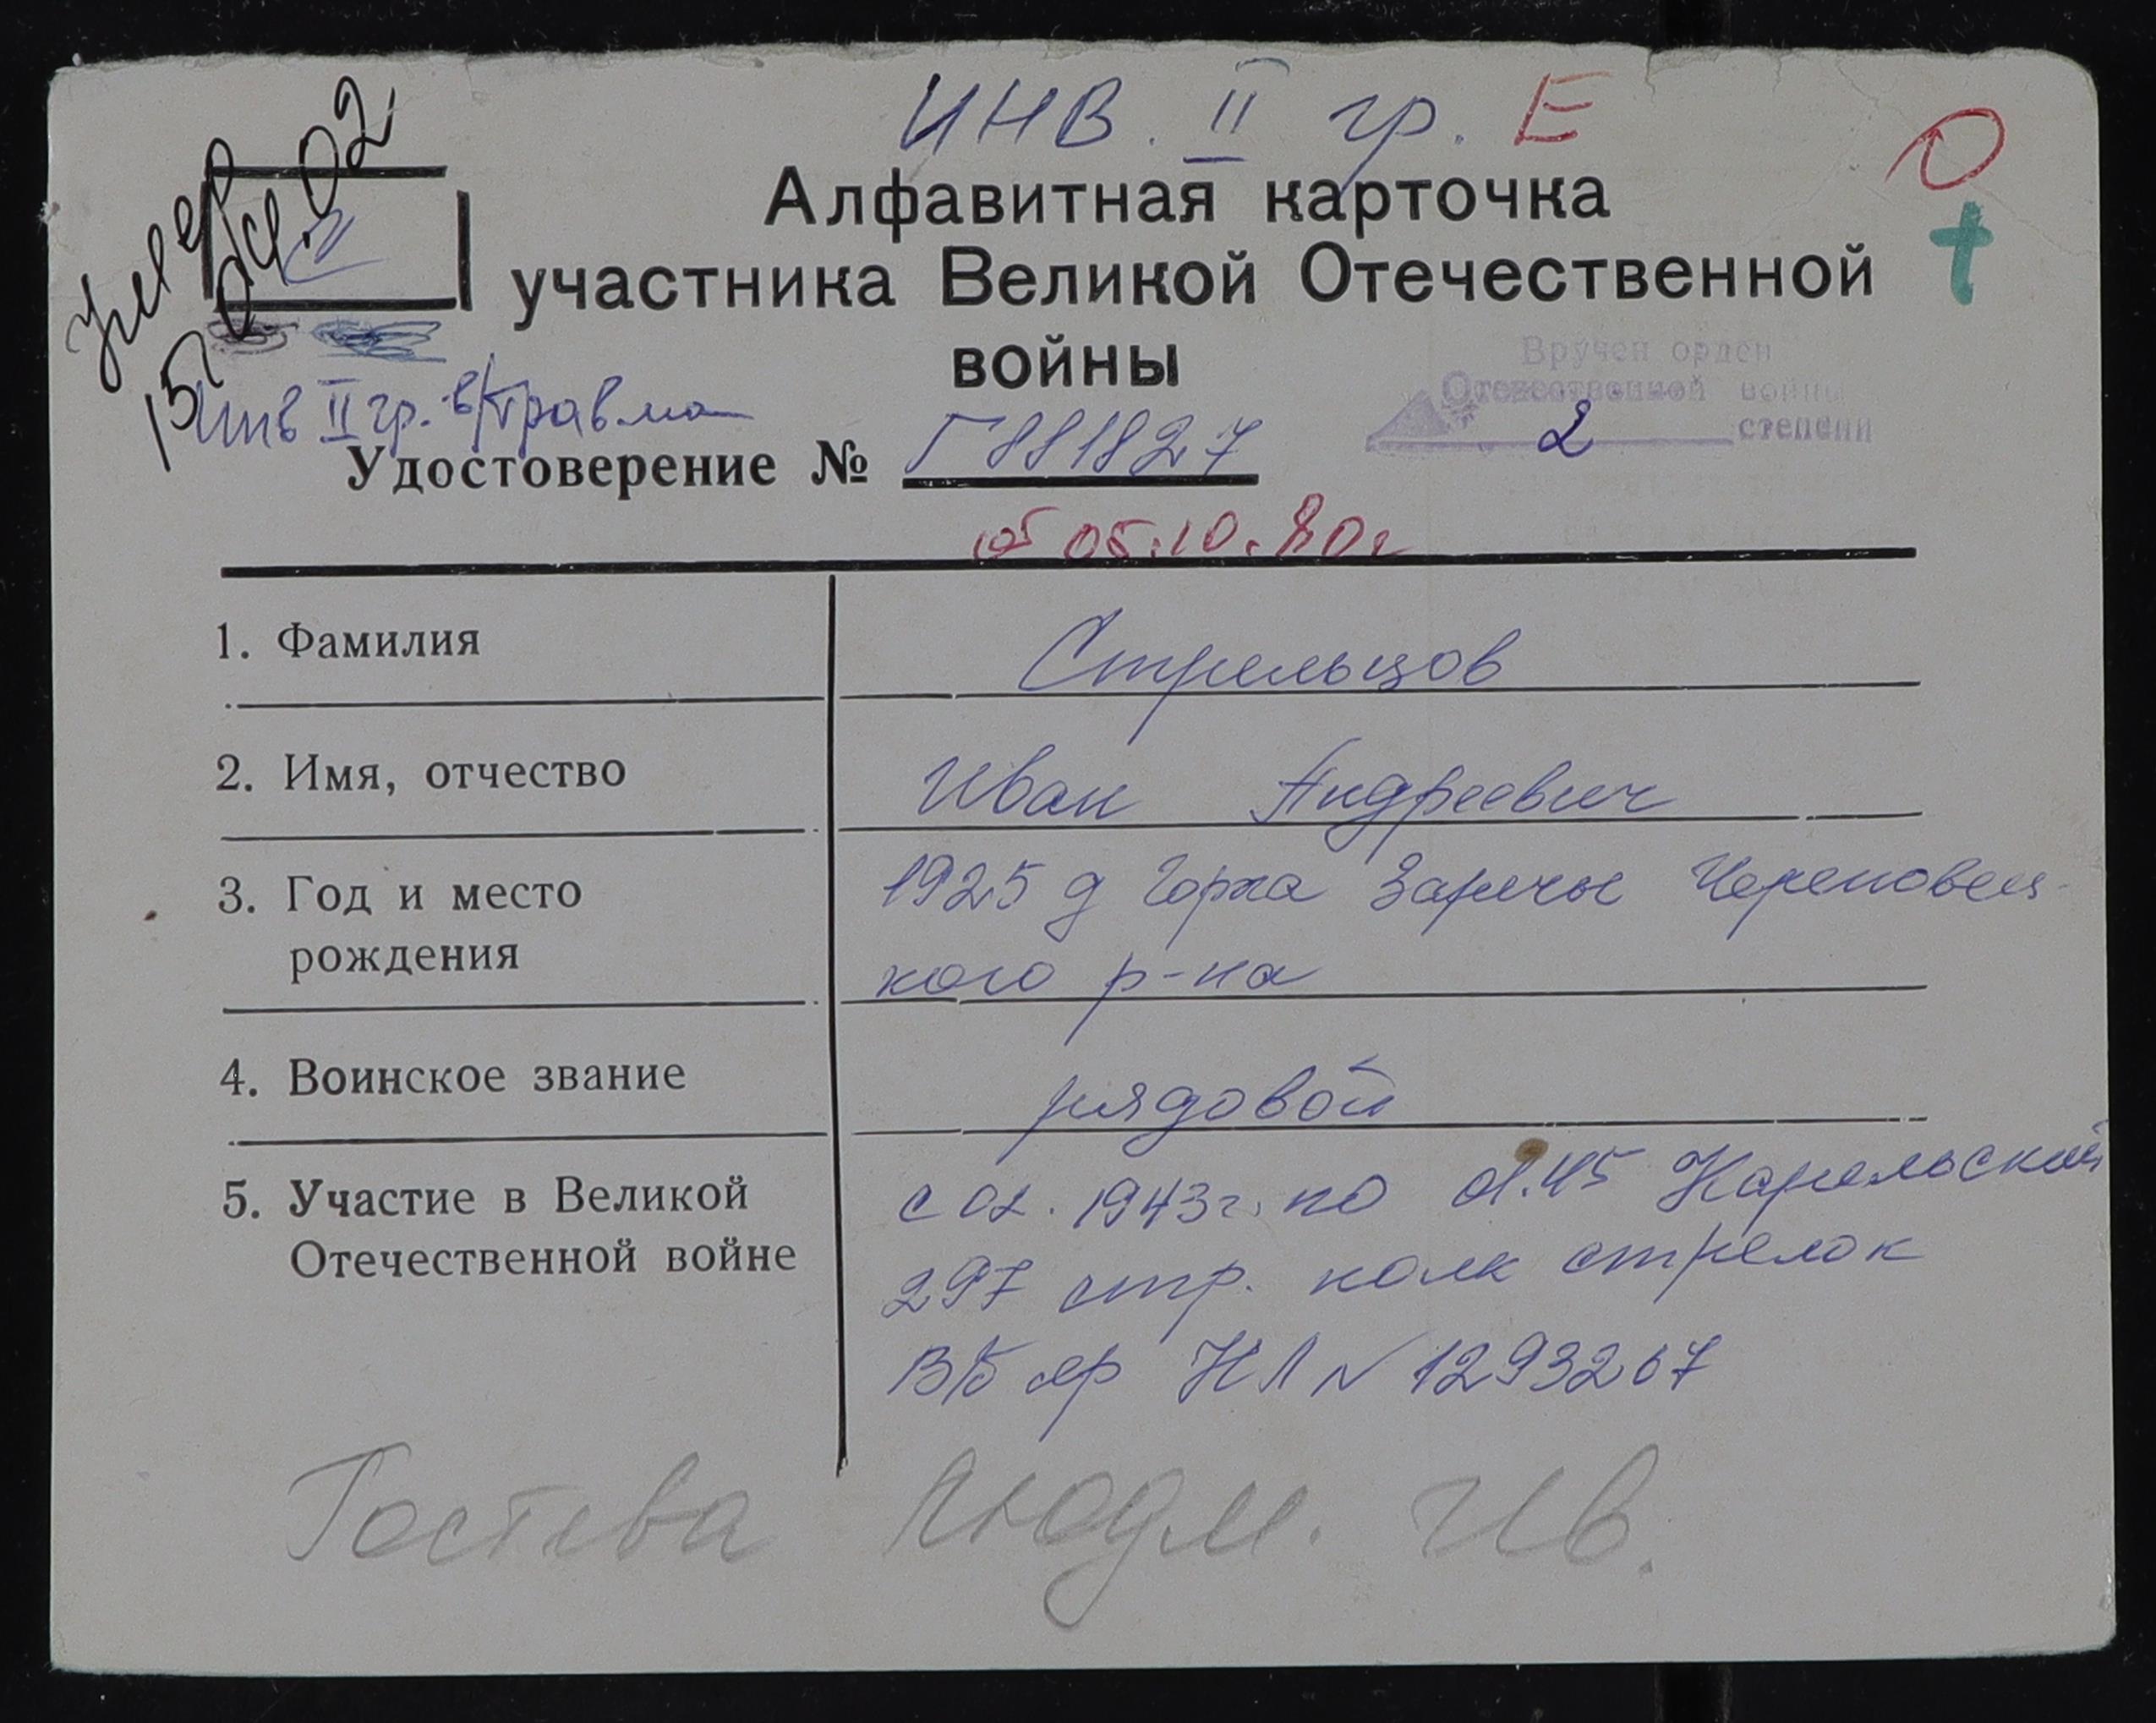 ИНВ. II гр. Е
О
умер
15.04.02
II
Алфавитная карточка
участника Великой Отечественной
войны
t
Вручен орден
Отечественной войны
2 степени
инв II гр. в/травма
Удостоверение № Г 881827
от 05.10.80г
1. Фамилия Стрельцов
2. Имя, отчество Иван Андреевич
3. Год и место 1925 д Горка Заречье Череповец-
рождения кого р-на
4. Воинское звание рядовой
5. Участие в Великой с 02. 1943г. по 01.45 Карельский
Отечественной войне 297 стр. полк стрелок
В/б НЛ № 1293267
Гостева Людм. Ив.